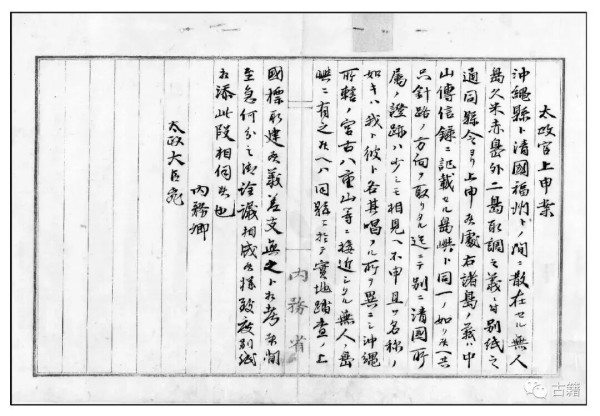 太政官上申案
沖縄縣ト清國福州トノ間ニ散在セル無人
島久米赤島外二島取調之義ニ付別紙之
通同縣令ヨリ上申候處右諸島ノ義ハ中
山傳信録ニ記載セル島嶼ト同一ノ如ク候ヘ共
只針路ノ方向ヲ取リタル迄ニテ別ニ清國所
属ノ證跡ハ少シモ相見ヘ不申且ツ名称ノ
如キハ我ト彼ト各其唱フル所ヲ異ニシ沖縄
所轄ノ宮古八重山等ニ接近シタル無人ノ島
嶼ニ有之候ヘハ同縣ニ於テ實地踏査ノ上
國標取建候義差支無之ト相考候間
至急何分之御詮議相成候様致度別紙
相添此段相伺候也
内務卿
太政大臣宛
内務省
古籍